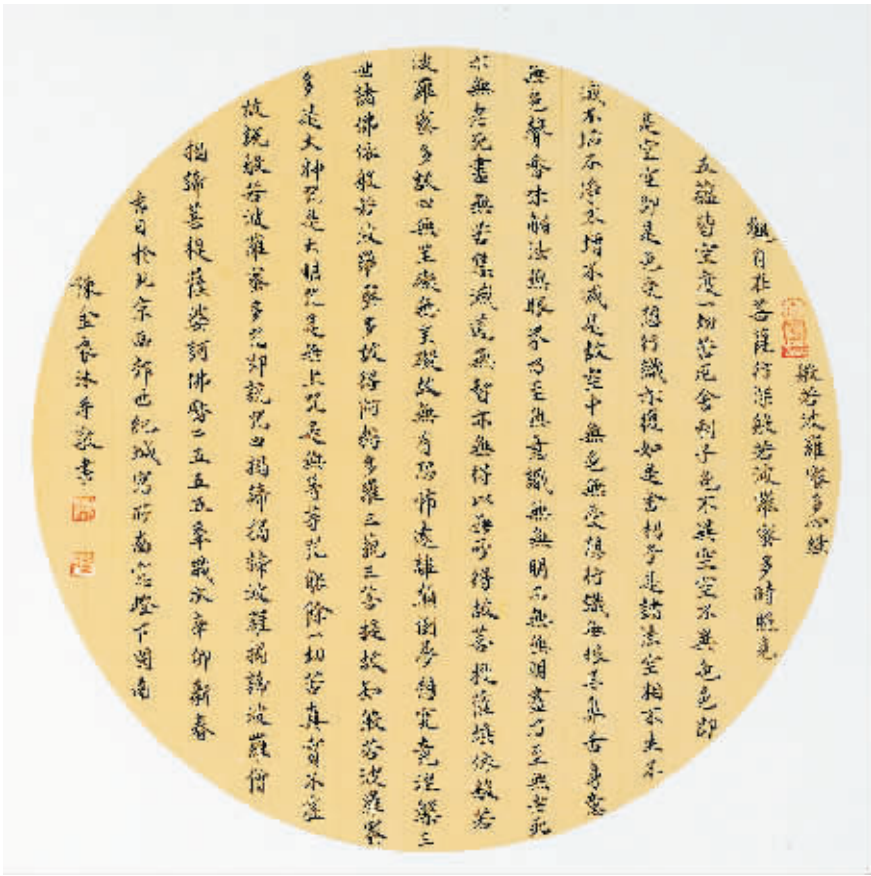 般若波羅蜜多心經
觀自在菩薩行深般若波羅蜜多時照見
五蘊皆空度一切苦厄舍利子色不異空空不異色色即
是空空即是色受想行識亦復如是舍利子是諸法空相不生不
滅不垢不淨不增不減是故空中無色無受想行識無眼耳鼻舌身意
無色聲香味觸法無眼界乃至無意識無無明亦無無明盡乃至無老死
亦無老死盡無苦集滅道無智亦無得以無所得故菩提薩埵依般若
波羅蜜多故心無罣礙無罣礙故無有恐怖遠離顛倒夢想究竟涅槃三
世諸佛依般若波羅蜜多故得阿耨多羅三藐三菩提故知般若波羅蜜
多是大神咒是大明咒是無上咒是無等等咒能除一切苦真實不虛
故說般若波羅蜜多咒即說咒曰揭諦揭諦波羅揭諦波羅僧
揭諦菩提薩婆訶佛曆二五五五年歲次辛卯新春
吉日於北京西郊世紀城寓所南窗燈下閩南
沐手敬書